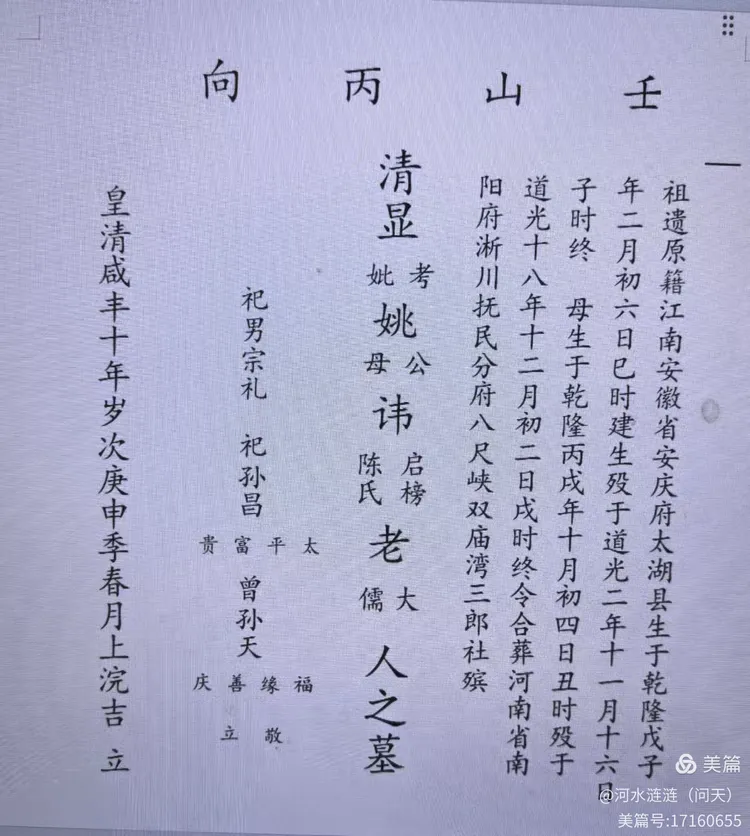 壬山丙向
祖遗原籍江南安徽省安庆府太湖县生于乾隆戊子
年二月初六日巳时建生殁于道光二年十一月十六日
子时终 母生于乾隆丙戌年十月初四日丑时殁于
道光十八年十二月初二日戌时终令合葬河南省南
阳府淅川抚民分府八尺峡双庙湾三郎社殡
清显考妣姚公母讳启榜陈氏老大儒人之墓
祀男宗礼 祀孙昌太平富贵 曾孙天福缘善庆 敬立
皇清咸丰十年岁次庚申季春月上浣吉 立
美篇
@河水涟涟（问天）
美篇号:17160655